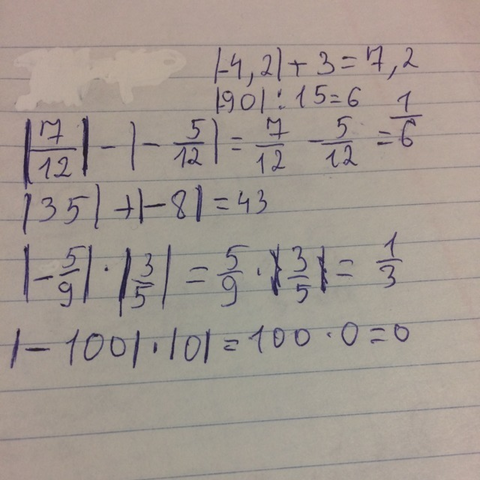 |-4,2| + 3 = 7,2
|90| : 15 = 6
|7/12| - |- 5/12| = 7/12 - 5/12 = 1/6
|35| + |-8| = 43
|- 5/9| · |3/5| = 5/9 · |3/5| = 1/3
|- 100| · |0| = 100 · 0 = 0